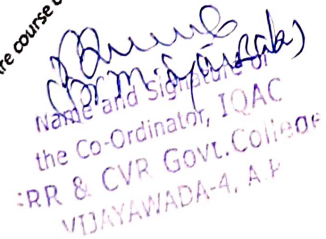 re course
Name and Signature of
the Co-Ordinator, IQAC
SRR & CVR Govt. College
VIJAYAWADA-4, A.P